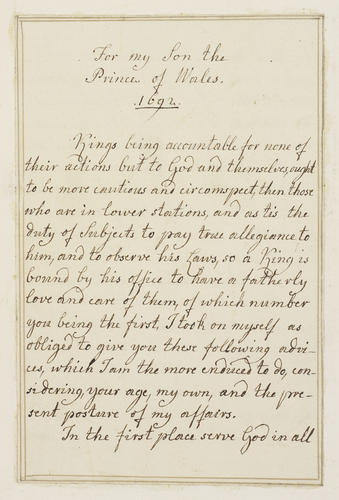 For my Son the
Prince of Wales.
1692.
Kings being accountable for none of
their actions but to God and themselves, ought
to be more cautious and circomspect, then those
who are in lower stations, and as tis the
duty of Subjects to pay true allegiance to
him, and to observe his Laws, so a King is
bound by his office to have a fatherly
love and care of them, of which number
you being the first, I look on myself as
obliged to give you these following advi-
ces, which I am the more enduced to do, con-
sidering your age, my own, and the pre-
sent posture of my affairs.
In the first place serve God in all